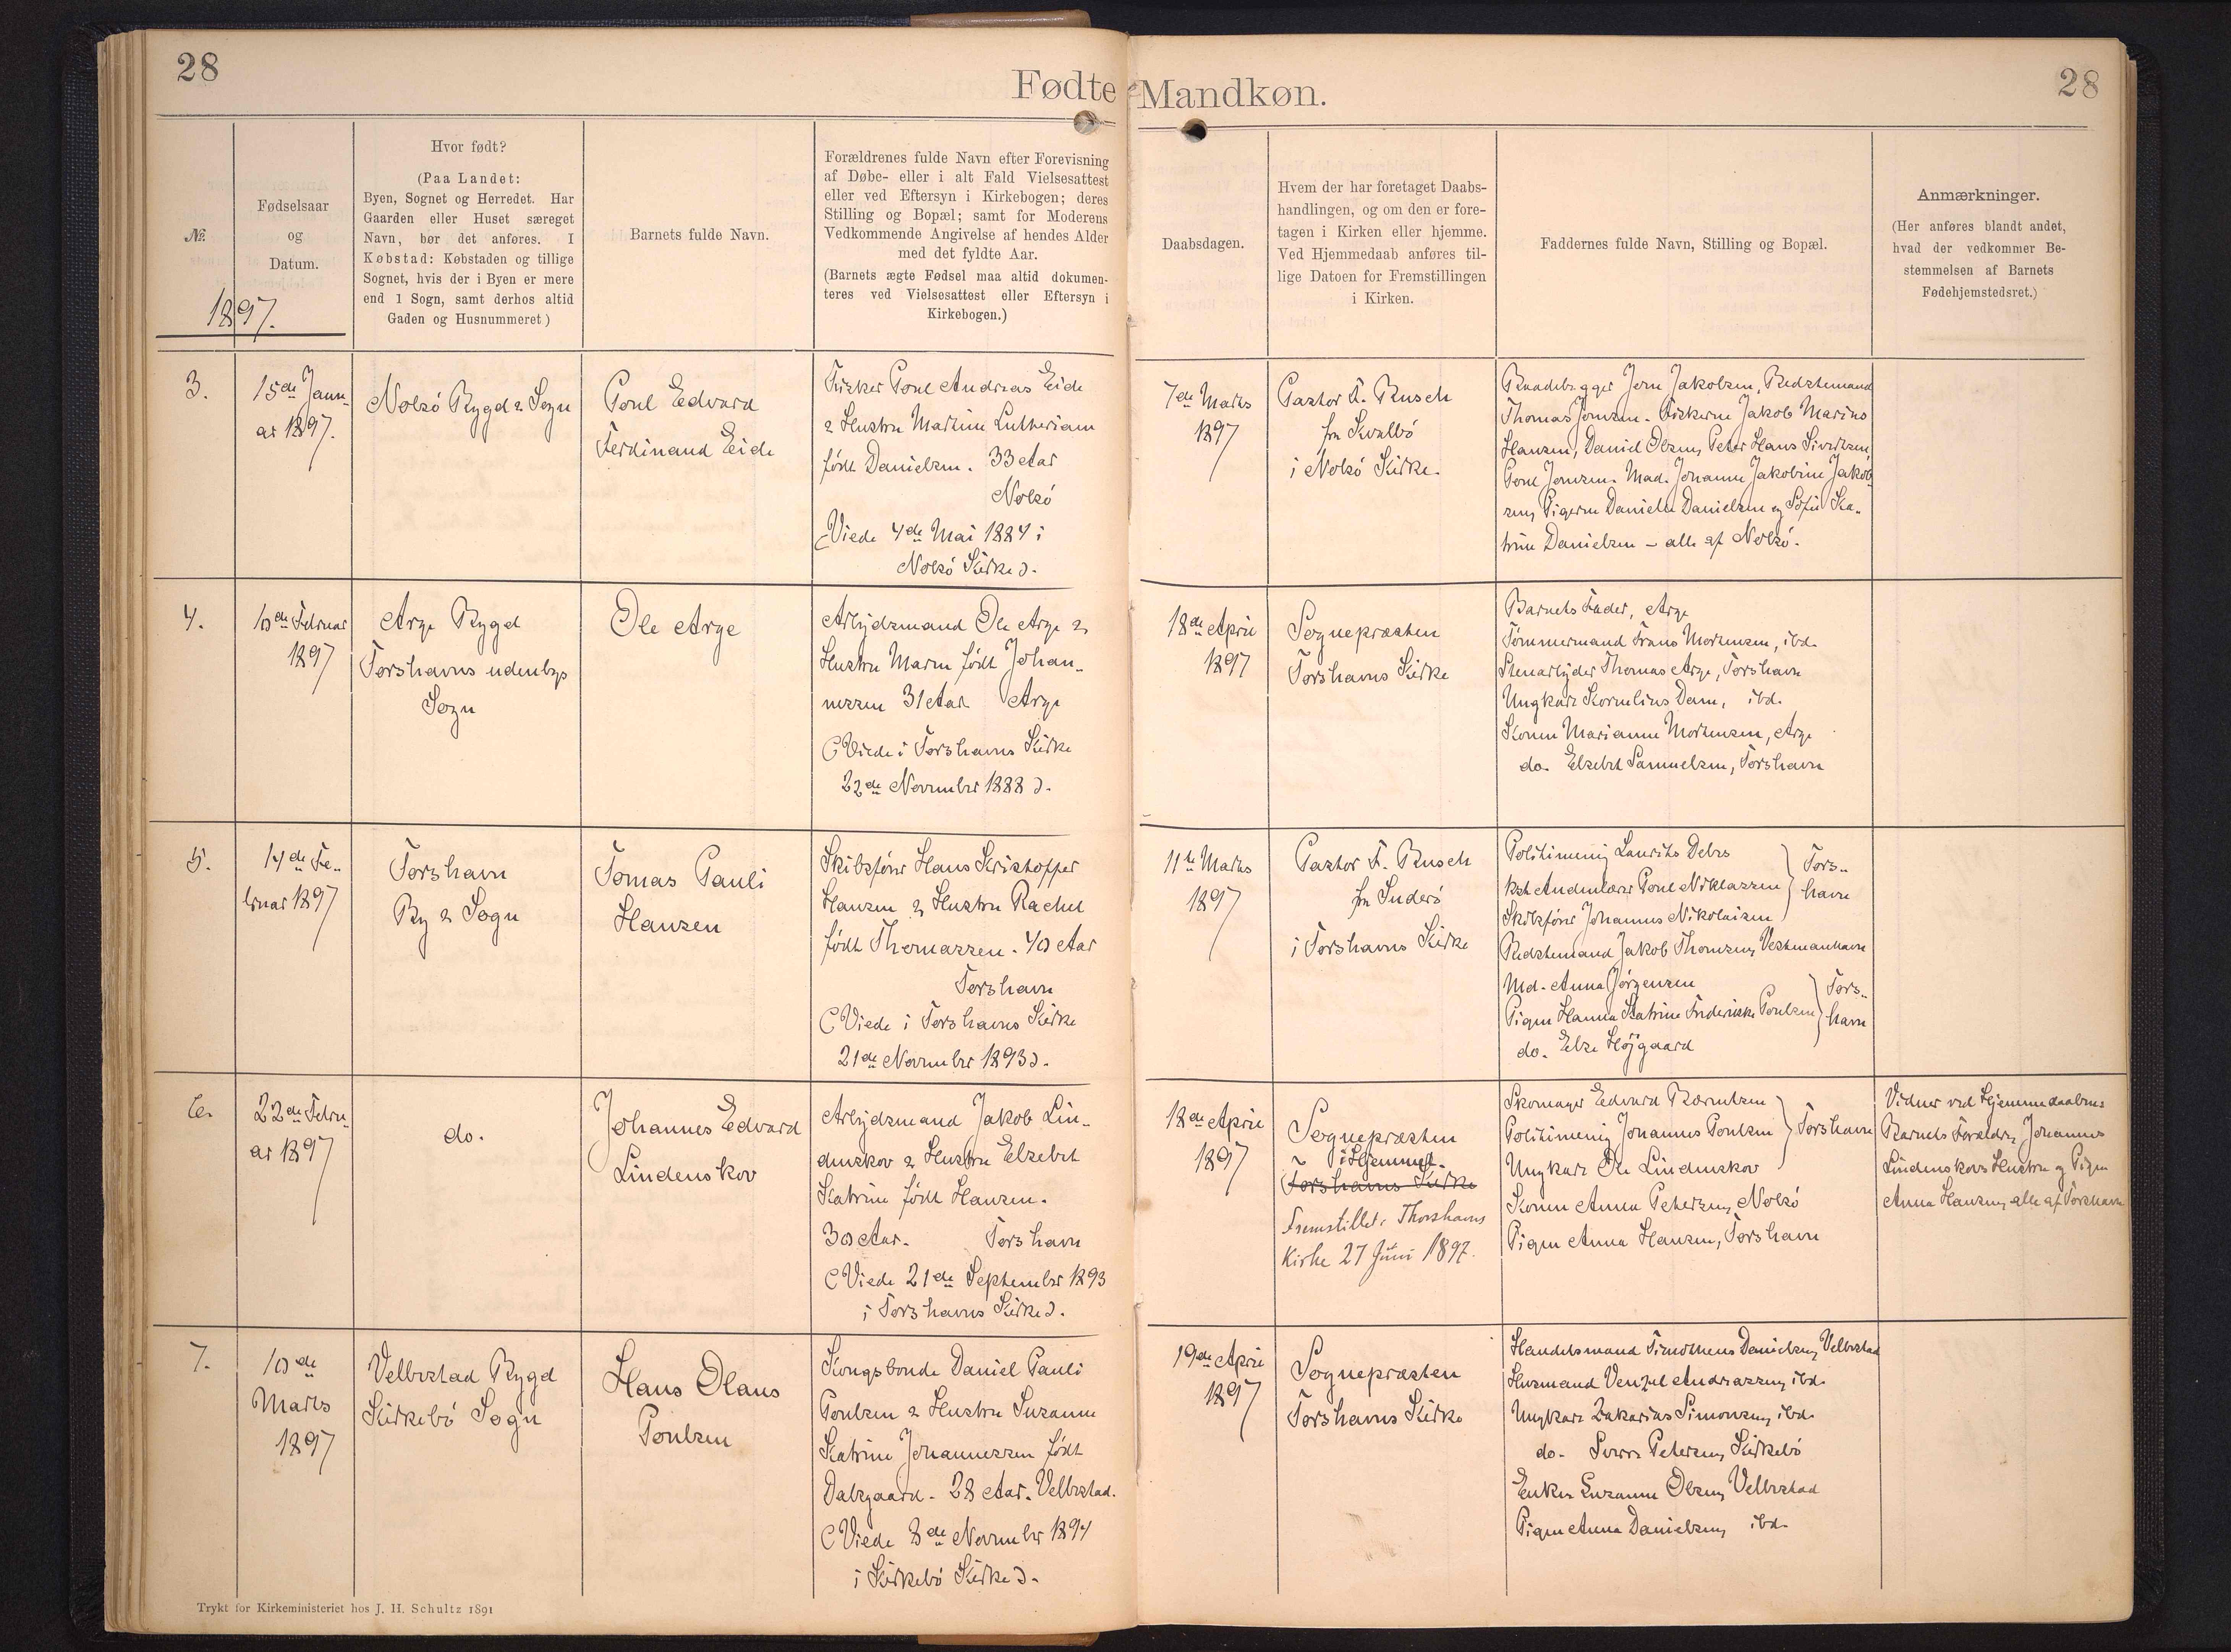 28
Fødte Mandkøn.
28
№
1897.
Fødselsaar
og
Datum.
Hvor født?
(Paa Landet:
Byen, Sognet og Herredet. Har
Gaarden eller Huset særeget
Navn, bør det anføres. I
Købstad: Købstaden og tillige
Sognet, hvis der i Byen er mere
end 1 Sogn, samt derhos altid
Gaden og Husnummeret)
Barnets fulde Navn.
Forældrenes fulde Navn efter Forevisning
af Døbe- eller i alt Fald Vielsesattest
eller ved Eftersyn i Kirkebogen; deres
Stilling og Bopæl; samt for Moderens
Vedkommende Angivelse af hendes Alder
med det fyldte Aar.
(Barnets ægte Fødsel maa altid dokumen-
teres ved Vielsesattest eller Eftersyn i
Kirkebogen.)
Daabsdagen.
Hvem der har foretaget Daabs-
handlingen, og om den er fore-
tagen i Kirken eller hjemme.
Ved Hjemmedaab anføres til-
lige Datoen for Fremstillingen
i Kirken.
Faddernes fulde Navn, Stilling og Bopæl.
Anmærkninger.
(Her anføres blandt andet,
hvad der vedkommer Be-
stemmelsen af Barnets
Fødehjemstedsret.)
3.
15de Janu-
ar 1897.
Nolsó Bygd & Sogn
Poul Edvard
Ferdinand Eide
Fisker Poul Andreas Eide
& Hustru Martine Lutheriam
født Danielsen. 33 Aar
Nolsó
(Viede 4de Mai 1884 i
Nolsó Kirke).
7de Marts
1897
Pastor F. Rusch
fra Kvalbó
i Nolsó Kirke.
Baadebygger Joen Jakobsen, Bedstemand
Thomas Joensen. Fiskerne Jakob Marius
Hansen, Daniel Olsen, Peter Hans Sivertsen,
Poul Joensen. Mad. Johanne Jakobine Jakob-
sen, Pigerne Daniela Danielsen og Sofie Ka-
trine Danielsen - alle af Nolsó.
4.
10de Februar
1897
Arge Bygd
Torshavns udenbys
Sogn
Ole Arge
Arbejdsmand Ole Arge &
Hustru Maren født Johan-
nessen 31 Aar Arge
(Viede i Torshavns Kirke
22de November 1888).
18de April
1897
Sognepræsten
Torshavns Kirke
Barnets Fader, Arge
Tömmermand Frans Mortensen, ibd.
Stenarbejder Thomas Arge, Torshavn
Ungkarl Kornelius Dam, ibd.
Konen Marianne Mortensen, Arge
do. Elsebet Samuelsen, Torshavn
5.
14de Fe-
bruar 1897
Torshavn
By & Sogn
Tomas Pauli
Hansen
Skibsfører Hans Kristoffer
Hansen & Hustru Rachel
født Thomassen. 40 Aar
Torshavn
(Viede i Torshavns Kirke
21de November 1893).
11te Marts
1897
Pastor F. Rusch
fra Suderó
i Torshavns Kirke
Politimenig Laurits Debes
Kst Andenlærer Poul Niklassen
Skibsfører Johannes Nikolaisen
Tors-
havn
Bedstemand Jakob Thomsen, Vestmanhavn
Md. Anna Jörgensen
Pigen Hanna Katrine Frederikke Poulsen
do. Else Höjgaard
Tors-
havn
6.
22de Febru-
ar 1897
do.
Johannes Edvard
Lindenskov
Arbejdsmand Jakob Lin-
denskov & Hustru Elsebet
Katrine født Hansen.
30 Aar. Torshavn
(Viede 21de September 1893
i Torshavns Kirke).
18de April
1897
Sognepræsten
i Hjemmet.
Torshavns Kirke
Fremstillet i Thorshavns
Kirke 27 Juni 1897.
Skomager Edvard Bærentsen
Politimenig Johannes Poulsen
Ungkarl Ole Lindenskov
Torshavn
Konen Anna Petersen, Nolsó
Pigen Anna Hansen, Torshavn
Vidner ved Hjemmedaaben:
Barnets Forældre, Johannes
Lindenskovs Hustru og Pigen
Anna Hansen, alle af Torshavn
7.
10de
Marts
1897
Velbestad Bygd
Kirkebó Sogn
Hans Olaus
Poulsen
Kongsbonde Daniel Pauli
Poulsen & Hustru Susanne
Katrine Johannessen født
Dalsgaard. 28 Aar. Velbestad.
(Viede 8de November 1894
i Kirkebó Kirke).
19de April
1897
Sognepræsten
Torshavns Kirke
Handelsmand Timotheus Danielsen, Velbestad
Husmand Venzel Andreassen, ibd.
Ungkarl Zakarias Simonsen, ibd.
do. Sverre Petersen, Kirkebó
Enken Susanne Olsen, Velbestad
Pigen Anna Danielsen, ibd.
Trykt for Kirkeministeriet hos J. H. Schultz 1891